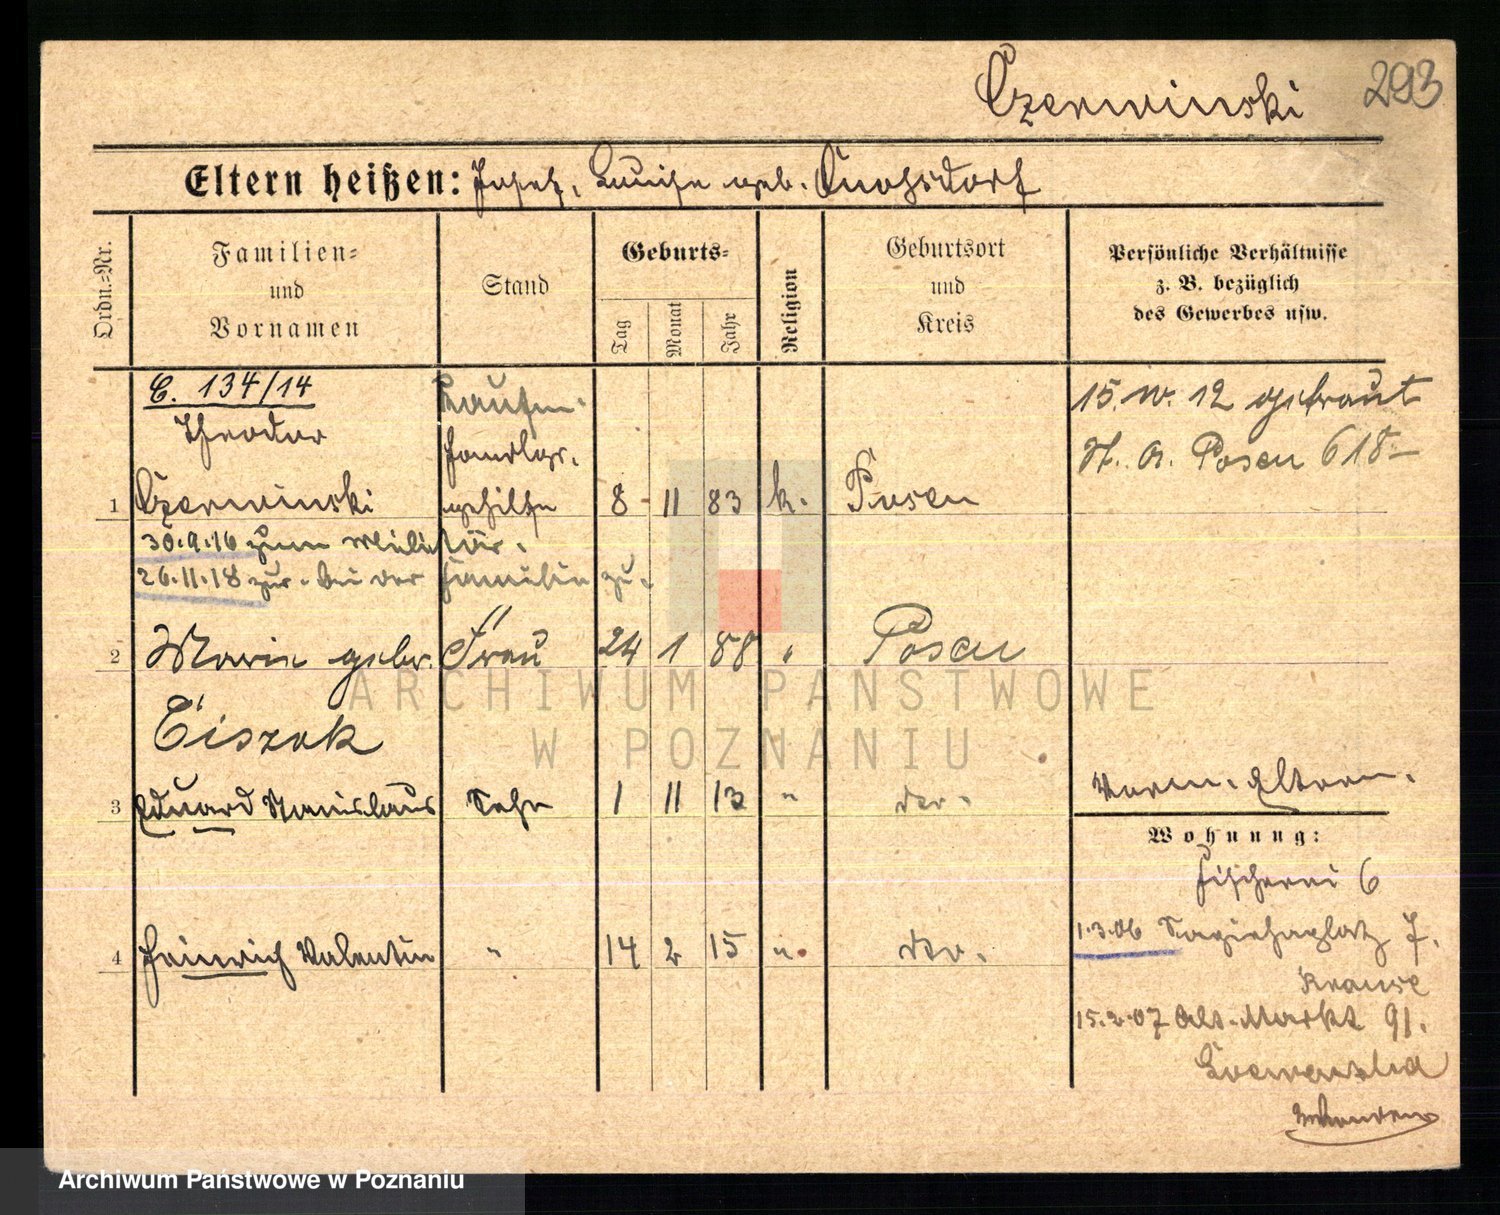 Czerwinski
293
Eltern heißen: Josef, Luise geb.
Ordn.-Nr.
Familien-
und
Vornamen
Stand
Geburts-
Tag
Monat
Jahr
Religion
Geburtsort
und
Kreis
Persönliche Verhältnisse
z. B. bezüglich
des Gewerbes usw.
C. 134/14
Theodor
1 Czerwinski
gehilfe
8 11 83 k. Posen
15. IV. 12 getraut
St. A. Posen 618
30.9.16 zum Militär.
26.11.18 zur. bei der Familie zu.
2 Marie gebr. Frau 24 1 88 " Posen
Eiszok
3 Eduard Stanislaus Sohn 1 11 13 " do.
Vorm. Eltern.
Wohnung:
Fischerei 6
4 Heinrich Valentin " 14 2 15 " do.
1.3.06 Sapiehaplatz 7.
Krause
15.2.07 Alt. Markt 91.
ARCHIWUM PAŃSTWOWE
W POZNANIU
Archiwum Państwowe w Poznaniu